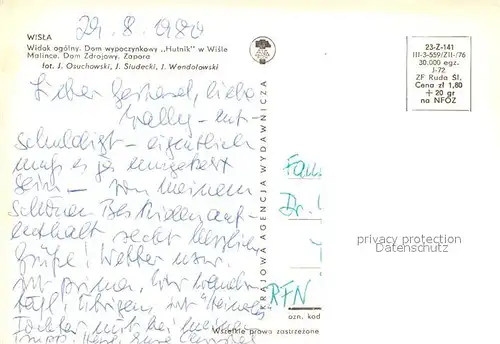 29. 8. 1980
WISŁA
Widok ogólny. Dom wypoczynkowy „Hutnik” w Wiśle
Malince. Dom Zdrojowy. Zapora
fot. J. Osuchowski, J. Siudecki, J. Wendołowski
23-Z-141
III-3-559/ZII-/76
30.000 egz.
J-72
ZF Ruda Śl.
Cena zł 1,80
+ 20 gr
na NFOZ
KRAJOWA AGENCJA WYDAWNICZA
Lieber Gerhard, liebe
Wally - ent-
schuldigt - eigentlich
muß es ja umgekehrt
sein - von meinem
schönen Beskidenauf-
enthalt recht herzliche
Grüße! Wetter usw.
ist prima, wir
Übrigens ist
Tochter mit bei meiner
Fam
Dr.
RFN
ozn. kod
Wszelkie prawa zastrzeżone
privacy protection
Datenschutz